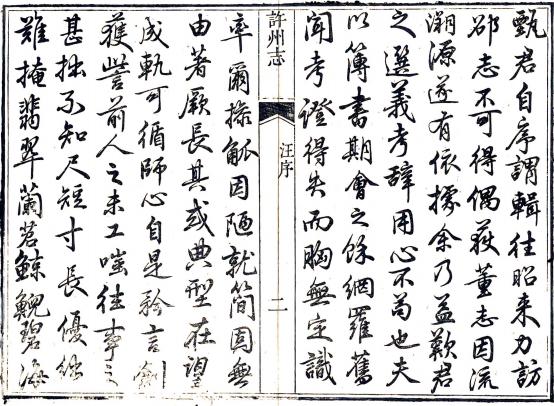 甄君自序謂輯往昭来力訪
邵志不可得偶获董志因流
溯源遂有依據余乃益歎君
之選義考辭用心不苟也夫
以簿書期會之餘網羅舊
聞考證得失而胸無定識
許州志
汪序
二
率爾操觚因陋就簡固無
由著厥長其或典型在望
成軌可循師心自是矜言創
獲訾前人之未工嗤往事之
甚拙不知尺短寸長優絀
難掩翡翠蘭苕鯨鯢碧海